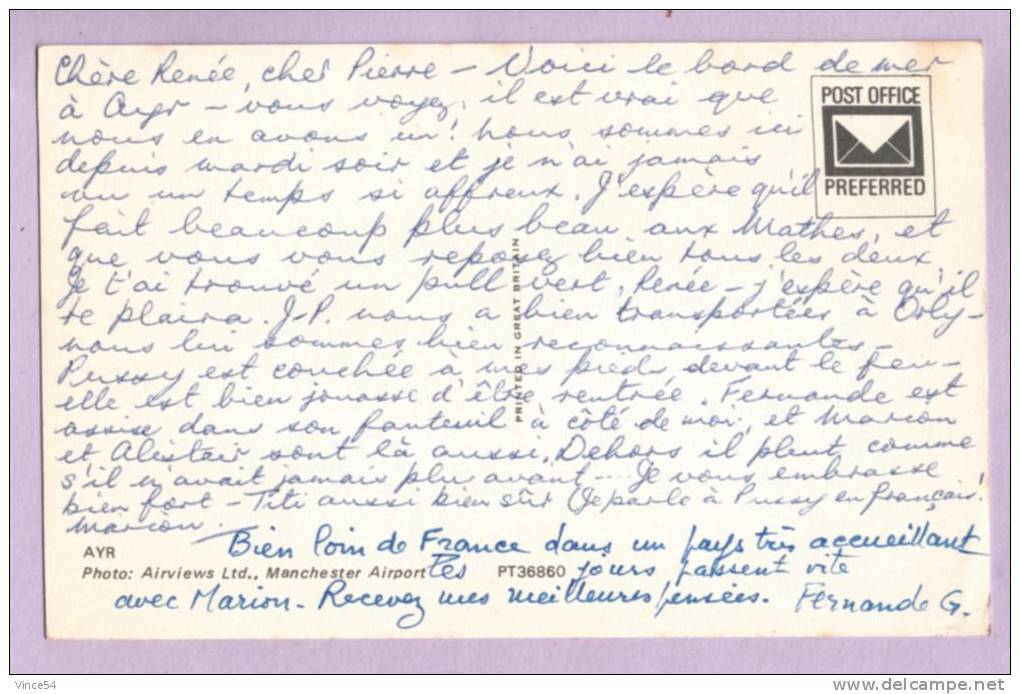 Chère Renée, cher Pierre – Voici le bord de mer
à Ayr – vous voyez, il est vrai que
nous en avons un! Nous sommes ici
depuis mardi soir et je n'ai jamais
vu un temps si affreux. J'espère qu'il
fait beaucoup plus beau aux Mathes, et
que vous vous reposez bien tous les deux
Je t'ai trouvé un pull vert, Renée – j'espère qu'il
te plaira. J-P. nous a bien transportées à Orly –
nous lui sommes bien reconnaissantes –
Pussy est couchée à mes pieds devant le feu –
elle est bien jouasse d'être rentrée. Fernande est
assise dans son fauteuil à côté de moi, et Marion
et Alistair sont là aussi. Dehors il pleut comme
s'il n'avait jamais plu avant... Je vous embrasse
bien fort – Titi aussi bien sûr (Je parle à Pussy en français!
Marion.
POST OFFICE
PREFERRED
PRINTED IN GREAT BRITAIN
AYR
Bien loin de France dans un pays très accueillant
Photo: Airviews Ltd., Manchester Airport
PT36860
les jours passent vite
avec Marion. Recevez mes meilleures pensées. Fernande G.
Vince54
www.delcampe.net